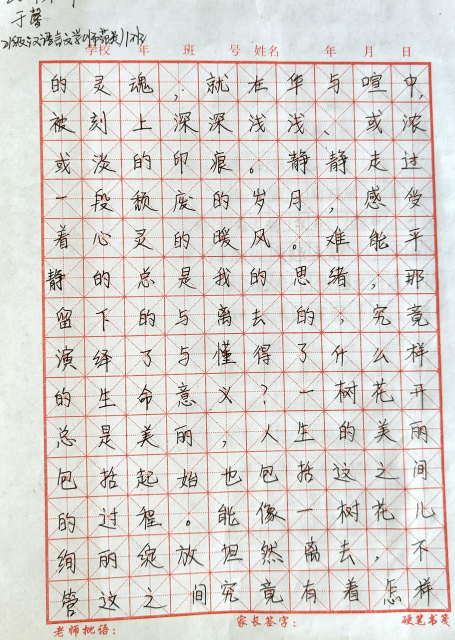 于馨
21级汉语言文学(师范类)1班
学校 年 班 号 姓名 年 月 日
的灵魂,就在华与喧中,
被刻上深深浅浅、或浓
或淡的印痕。静静走过
一段颓废的岁月,感受
着心灵的暖风。难能平
静的总是我的思绪,那
留下的与离去的,究竟
演绎了与懂得了什么样
的生命意义?一树花开
总是美丽,人生的美丽
包括起始也包括这之间
的过程。能像一树花儿
绚丽绽放坦然离去,不
管这之间究竟有着怎样
老师批语: 家长签字: 硬笔书笺